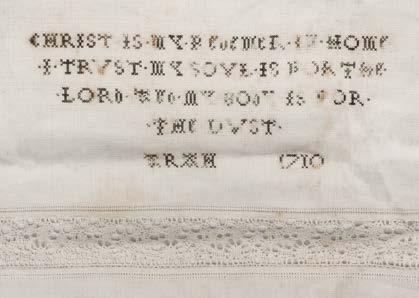 CHRIST·IS·MY·REDEMER·IN·HOME
·I·TRVST·MY·SOVL·IS·FOR·THE·
·LORD·AND·MY·BODY·IS·FOR·
·THE·DVST·
1710